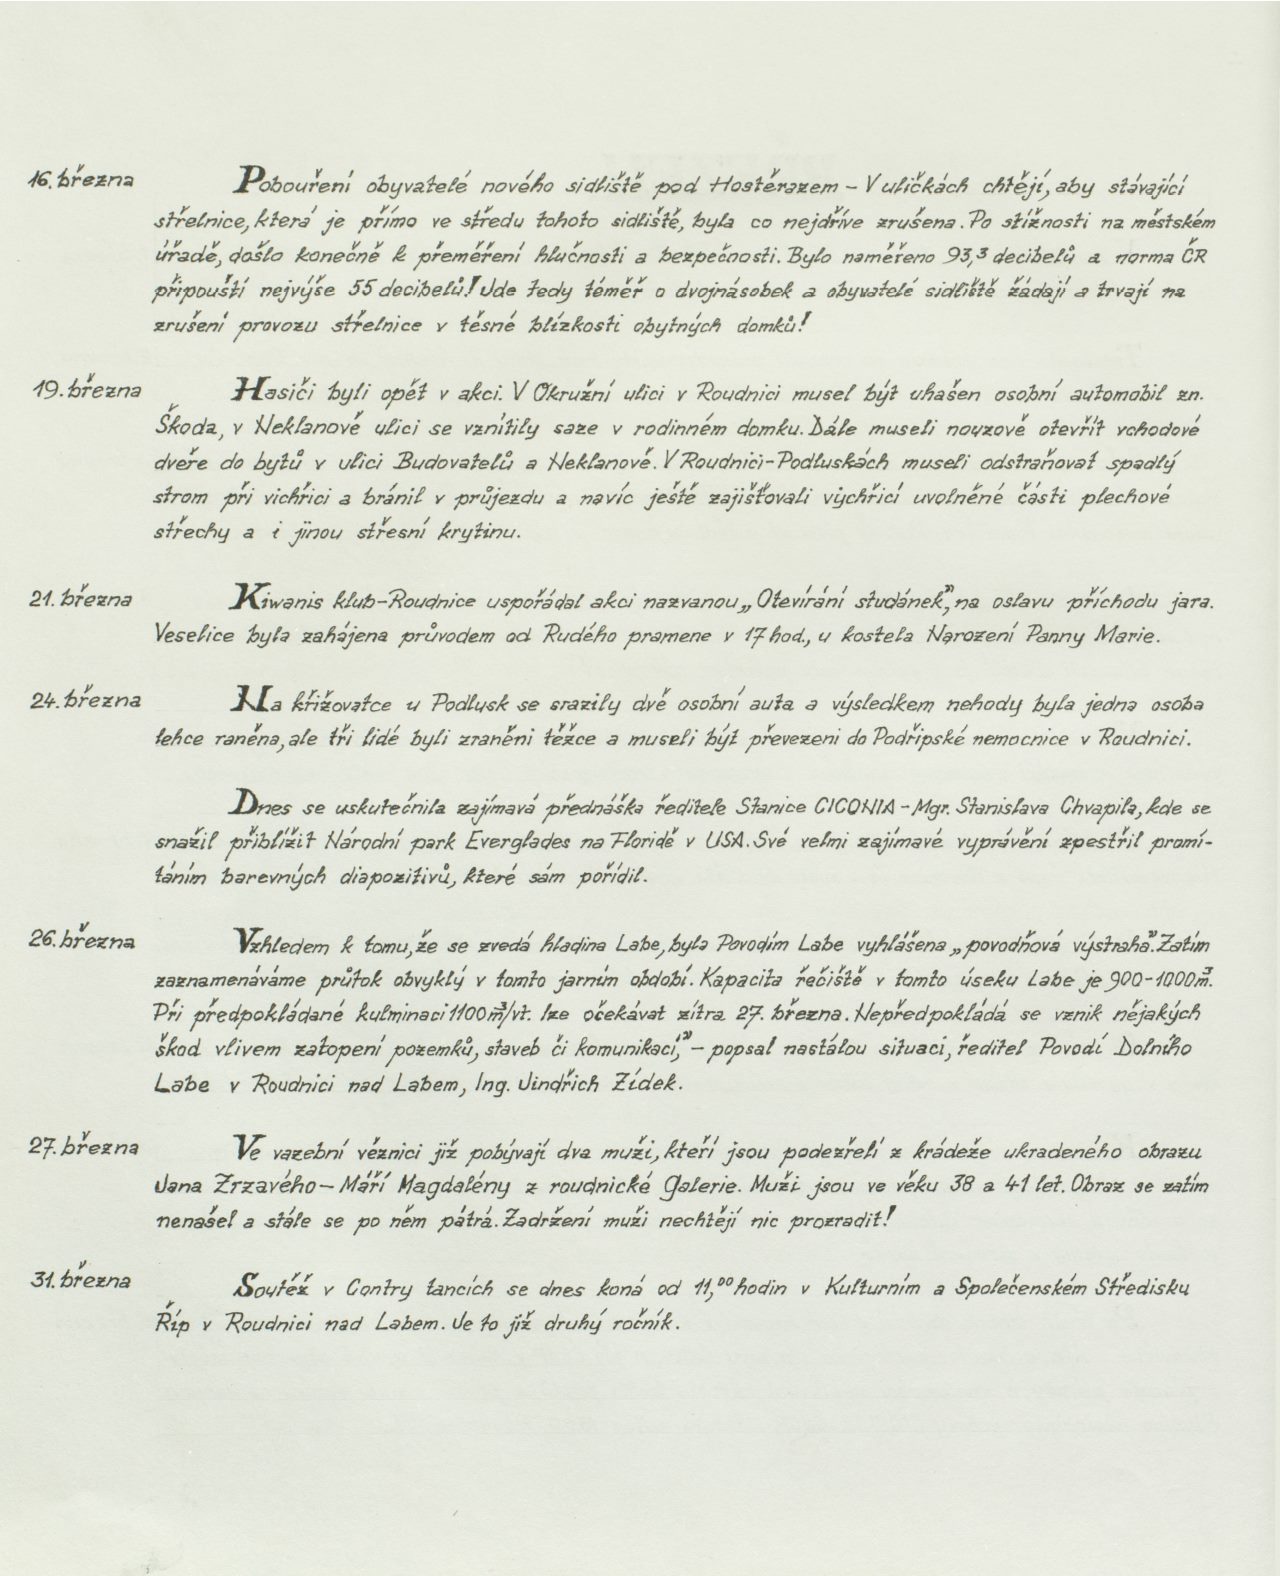 16. března Pobouření obyvatelé nového sidliště pod Hostěrazem – V uličkách chtějí, aby stávající
střelnice, která je přímo ve středu tohoto sidliště, byla co nejdříve zrušena. Po stížnosti na městském
úřadě, došlo konečně k přeměření hlučnosti a bezpečnosti. Bylo naměřeno 93,3 decibelů a norma ČR
připouští nejvýše 55 decibelů! Jde tedy téměř o dvojnásobek a obyvatelé sidliště žádají a trvají na
zrušení provozu střelnice v těsné blízkosti obytných domků!
19. března Hasiči byli opět v akci. V Okružní ulici v Roudnici musel být uhašen osobní automobil zn.
Škoda, v Neklanově ulici se vznítily saze v rodinném domku. Dále museli nouzově otevřít vchodové
dveře do bytů v ulici Budovatelů a Neklanově. V Roudnici-Podluskách museli odstraňovat spadlý
strom při vichřici a bránil v průjezdu a navíc ještě zajišťovali vichřicí uvolněné části plechové
střechy a i jinou střesní krytinu.
21. března Kiwanis klub-Roudnice uspořádal akci nazvanou „Otevírání studánek”, na oslavu příchodu jara.
Veselice byla zahájena průvodem od Rudého pramene v 17 hod., u kostela Narození Panny Marie.
24. března Na křižovatce u Podlusk se srazily dvě osobní auta a výsledkem nehody byla jedna osoba
lehce raněna, ale tři lidé byli zraněni těžce a museli být převezeni do Podřipské nemocnice v Roudnici.
Dnes se uskutečnila zajímavá přednáška ředitele Stanice CICONIA – Mgr. Stanislava Chvapila, kde se
snažil přiblížit Národní park Everglades na Floridě v USA. Své velmi zajímavé vyprávění zpestřil promí-
táním barevných diapozitivů, které sám pořídil.
26. března Vzhledem k tomu, že se zvedá hladina Labe, byla Povodím Labe vyhlášena „povodňová výstraha”. Zatím
zaznamenáváme průtok obvyklý v tomto jarním období. Kapacita řečiště v tomto úseku Labe je 900-1000m³.
Při předpokládané kulminaci 1100m³/vt. lze očekávat zítra 27. března. Nepředpokládá se vznik nějakých
škod vlivem zatopení pozemků, staveb či komunikací,” – popsal nastálou situaci, ředitel Povodí Dolního
Labe v Roudnici nad Labem, Ing. Jindřich Zídek.
27. března Ve vazební věznici již pobývají dva muži, kteří jsou podezřelí z krádeže ukradeného obrazu
Jana Zrzavého – Máří Magdalény z roudnické galerie. Muži jsou ve věku 38 a 41 let. Obraz se zatím
nenašel a stále se po něm pátrá. Zadržení muži nechtějí nic prozradit!
31. března Soutěž v Contry tancích se dnes koná od 11,⁰⁰ hodin v Kulturním a Společenském Středisku
Říp v Roudnici nad Labem. Je to již druhý ročník.